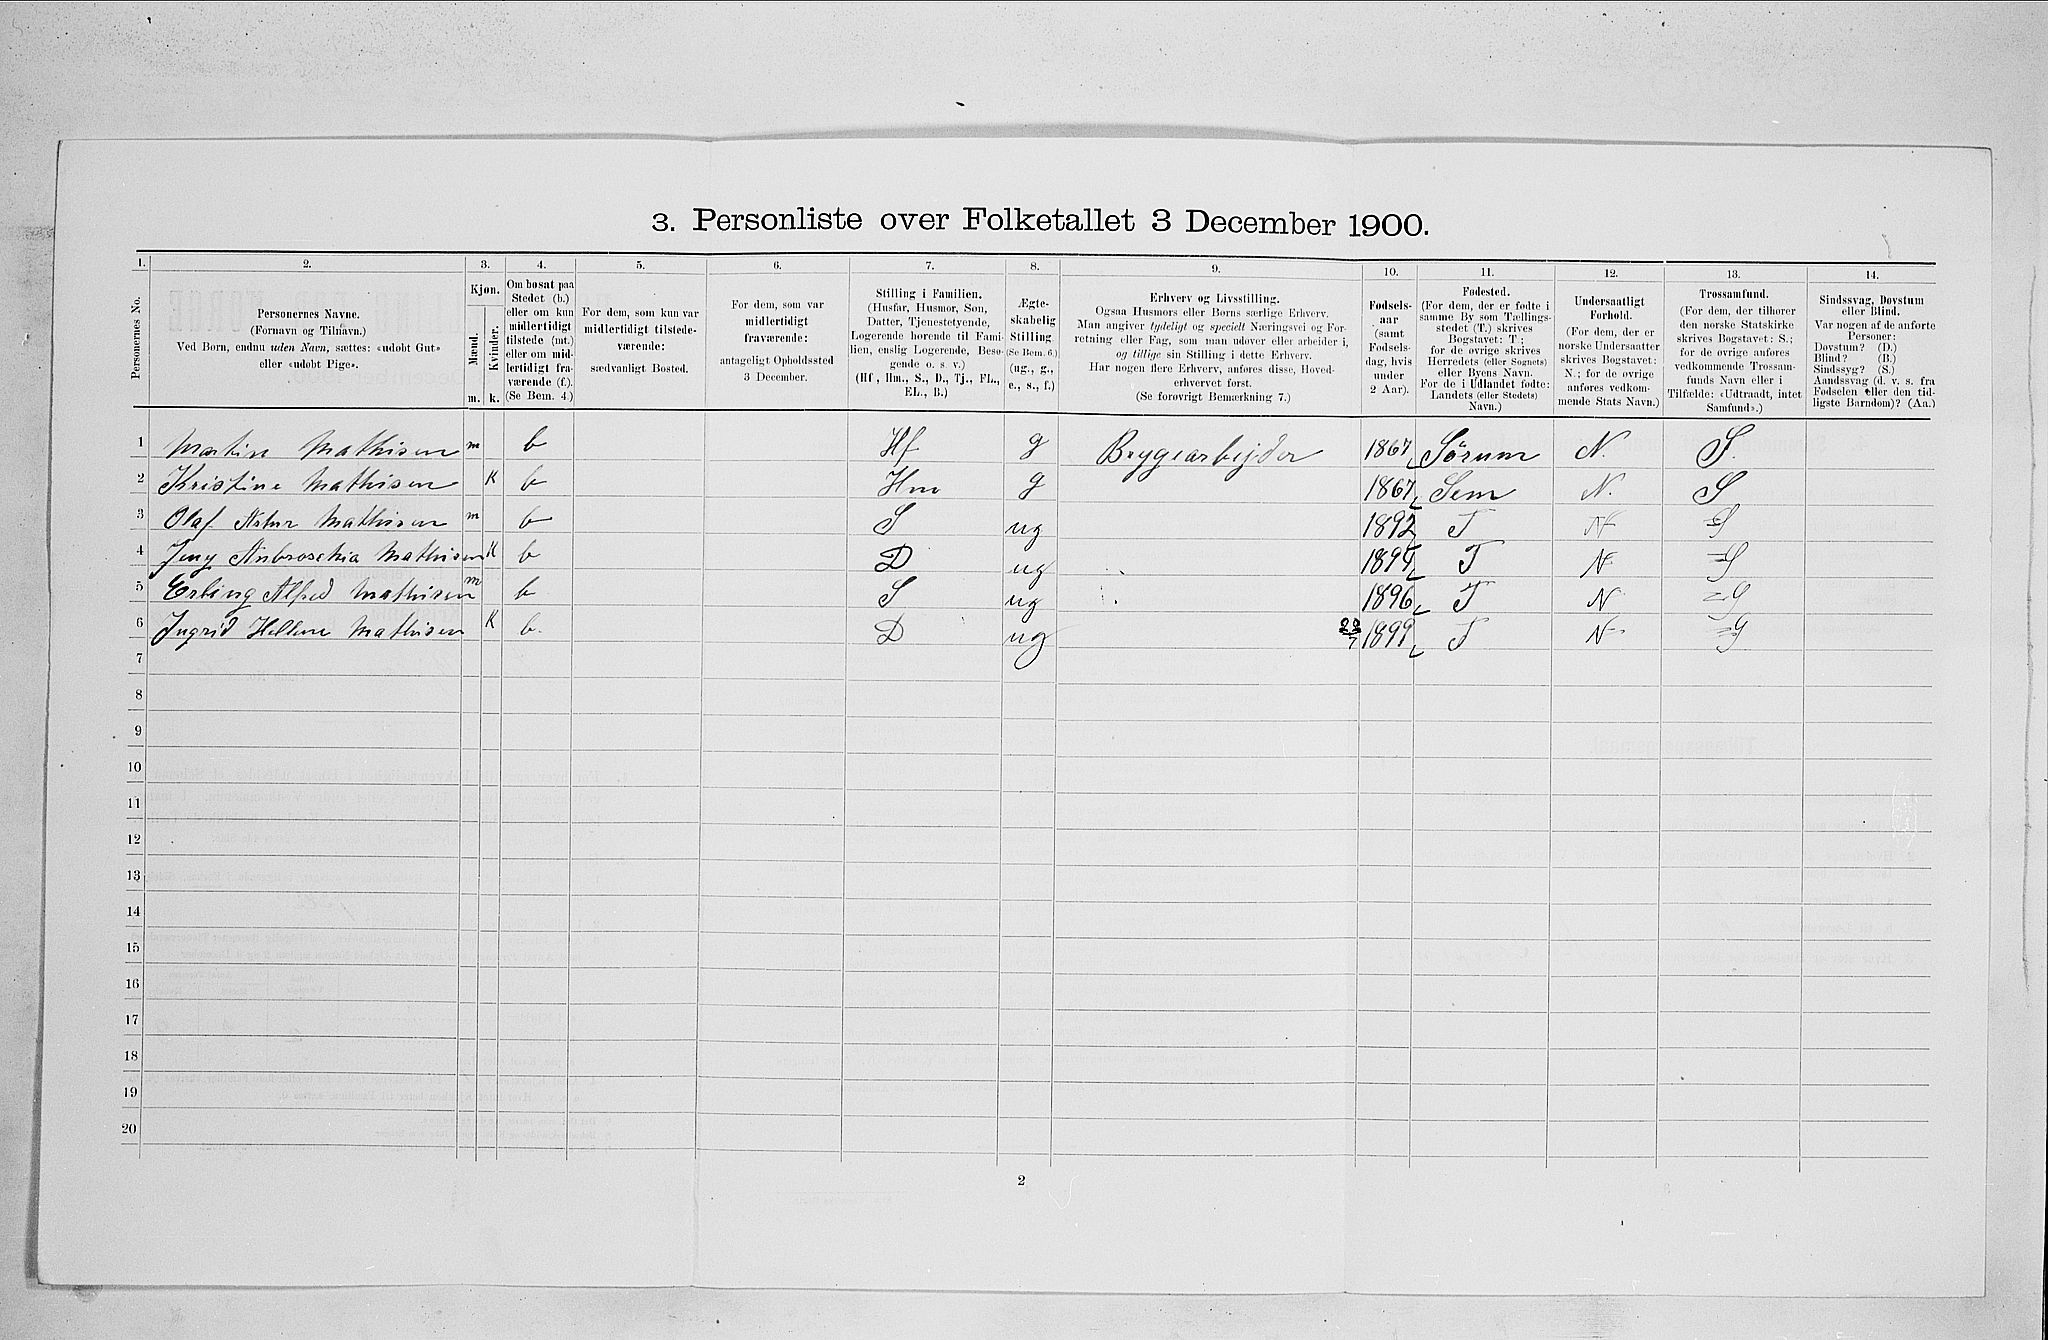 3. Personliste over Folketallet 3 December 1900.
1. 2. 3. 4. 5. 6. 7. 8. 9. 10. 11. 12. 13. 14.
Personernes No.
Personernes Navne.
(Fornavn og Tilnavn.)
Ved Børn, endnu uden Navn, sættes: «udøbt Gut»
eller «udøbt Pige».
Kjøn.
Mænd.
Kvinder.
m. k.
Om bosat paa
Stedet (b.)
eller om kun
midlertidigt
tilstede (mt.)
eller om mid-
lertidigt fra-
værende (f.).
(Se Bem. 4.)
For dem, som kun var
midlertidigt tilstede-
værende:
sædvanligt Bosted.
For dem, som var
midlertidigt
fraværende:
antageligt Opholdssted
3 December.
Stilling i Familien.
(Husfar, Husmor, Søn,
Datter, Tjenestetyende,
Logerende hørende til Fami-
lien, enslig Logerende, Besø-
gende o. s. v.)
(Hf., Hm., S., D., Tj., FL.,
EL., B.)
Ægte-
skabelig
Stilling.
(Se Bem. 6.)
(ug., g.,
e., s., f.)
Erhverv og Livsstilling.
Ogsaa Husmors eller Børns særlige Erhverv.
Man angiver tydeligt og specielt Næringsvei og For-
retning eller Fag, som man udøver eller arbeider i,
og tillige sin Stilling i dette Erhverv.
Har nogen flere Erhverv, anføres disse, Hoved-
erhvervet først.
(Se forøvrigt Bemærkning 7.)
Fødsels-
aar
(samt
Fødsels-
dag, hvis
under
2 Aar).
Fødested.
(For dem, der er fødte i
samme By som Tællings-
stedet (T.) skrives
Bogstavet: T.;
for de øvrige skrives
Herredets (eller Sognets)
eller Byens Navn.
For de i Udlandet fødte:
Landets (eller Stedets)
Navn.)
Undersaatligt
Forhold.
(For dem, der er
norske Undersaatter
skrives Bogstavet:
N.; for de øvrige
anføres vedkom-
mende Stats Navn.)
Trossamfund.
(For dem, der tilhører
den norske Statskirke
skrives Bogstavet: S.;
for de øvrige anføres
vedkommende Trossam-
funds Navn eller i
Tilfælde: «Udtraadt, intet
Samfund».)
Sindssvag, Døvstum
eller Blind.
Var nogen af de anførte
Personer:
Døvstum? (D.)
Blind? (B.)
Sindssyg? (S.)
Aandssvag (d. v. s. fra
Fødselen eller den tid-
ligste Barndom)? (Aa.)
1 Martin Mathisen m b Hf g Brygearbejder 1867 Sørum N. S.
2 Kristine Mathisen K b Hm g 1867 Sem N. S
3 Olaf Mathisen m b S ug 1892 T N S
4 Jeny Mathisen K b D ug 1894 T N S
5 Erling Alfred Mathisen m b S ug 1896 T N S
6 Ingrid Hellene Mathisen K b. D ug 22/7 1899 T N S
7
8
9
10
11
12
13
14
15
16
17
18
19
20
2